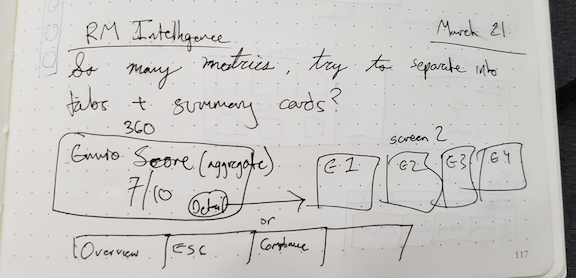 RM Intelligence
March 21
So many metrics, try to separate into
tabs + summary cards?
360
Enviro Score (aggregate)
7/10
Detail
screen 2
E1
E2
E3
E4
or
Overview
ESC
Compliance
117